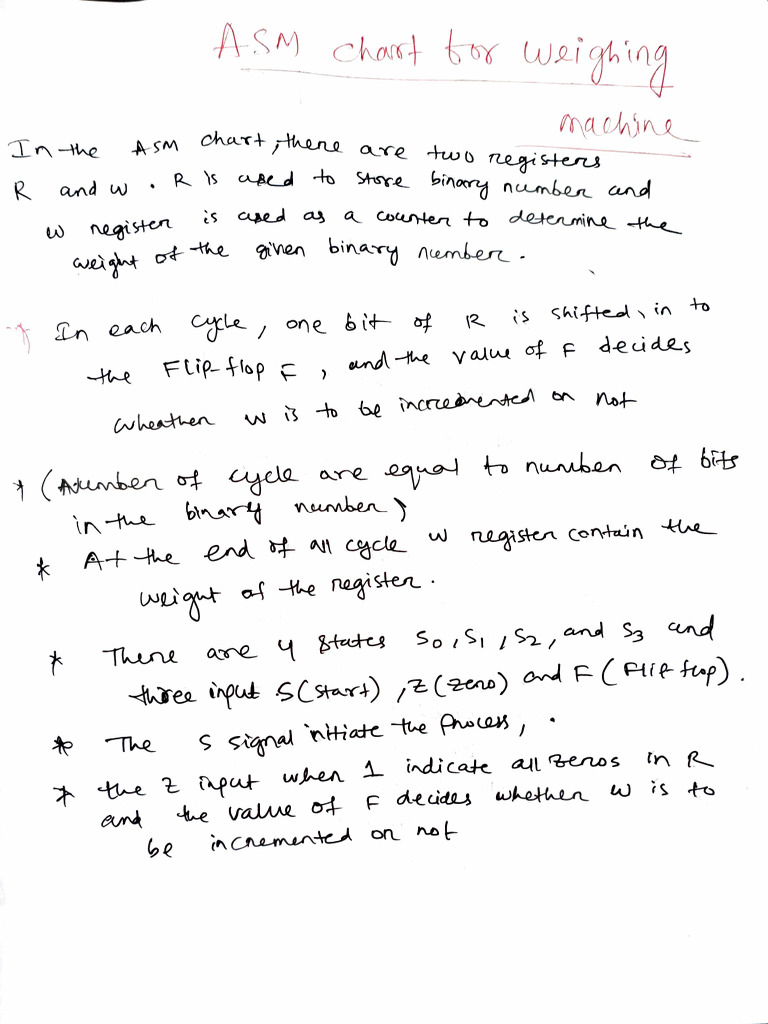 ASM chart for weighing
machine
In the ASM chart, there are two registers
R and W. R is used to store binary number and
W register is used as a counter to determine the
weight of the given binary number.
* In each cycle, one bit of R is shifted, in to
the Flip-flop F, and the value of F decides
wheather W is to be incremented or not
* (Number of cycle are equal to number of bits
in the binary number)
* At the end of all cycle W register contain the
weight of the register.
* There are 4 states S0, S1, S2, and S3 and
three input S(start), Z(zero) and F (Flip flop).
* The S signal initiate the process,.
* the Z input when 1 indicate all zeros in R
and the value of F decides whether W is to
be incremented or not